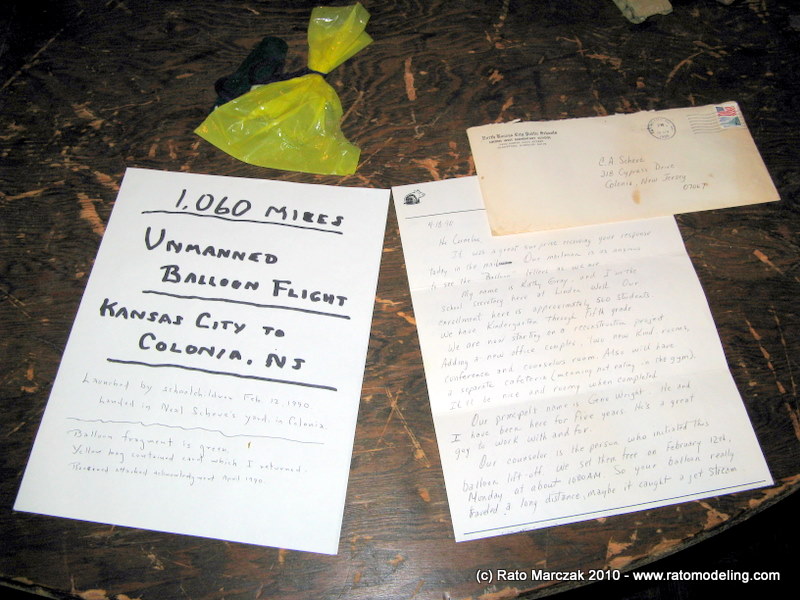 1,060 MILES
UNMANNED
BALLOON FLIGHT
KANSAS CITY TO
COLONIA, NJ
Launched by schoolchildren Feb 12, 1990
Landed in Neal Scheue's yard, in Colonia
Balloon fragment is green.
Yellow bag contained card which I returned.
Received attached acknowledgment April 1990.
North Kansas City Public Schools
C.A. Scheue
318 Cypress Drive
Colonia, New Jersey
07067
It was a great surprise receiving your response
today in the mail. Our mailman is as anxious
to see the "Balloon" letters as we are.
My name is Kathy Gray, and I'm the
School Secretary here at Linden West. Our
enrollment here is approximately 500 students.
We have Kindergarten through Fifth grade.
We are now starting on a reconstruction project
Adding a new office complex, two new Kind. rooms,
conference and counselors room. Also will have
a separate cafeteria (meaning not eating in the gym).
It'll be nice and roomy when completed.
Our principal's name is Gene Wright. He and
I have been here for five years. He's a great
guy to work with and for.
Our counselor is the person who initiated this
balloon lift off. We set them free on February 12th,
Monday, at about 10:00AM. So your balloon really
traveled a long distance, maybe it caught a jet stream.
(c) Rato Marczak 2010 - www.ratomodeling.com